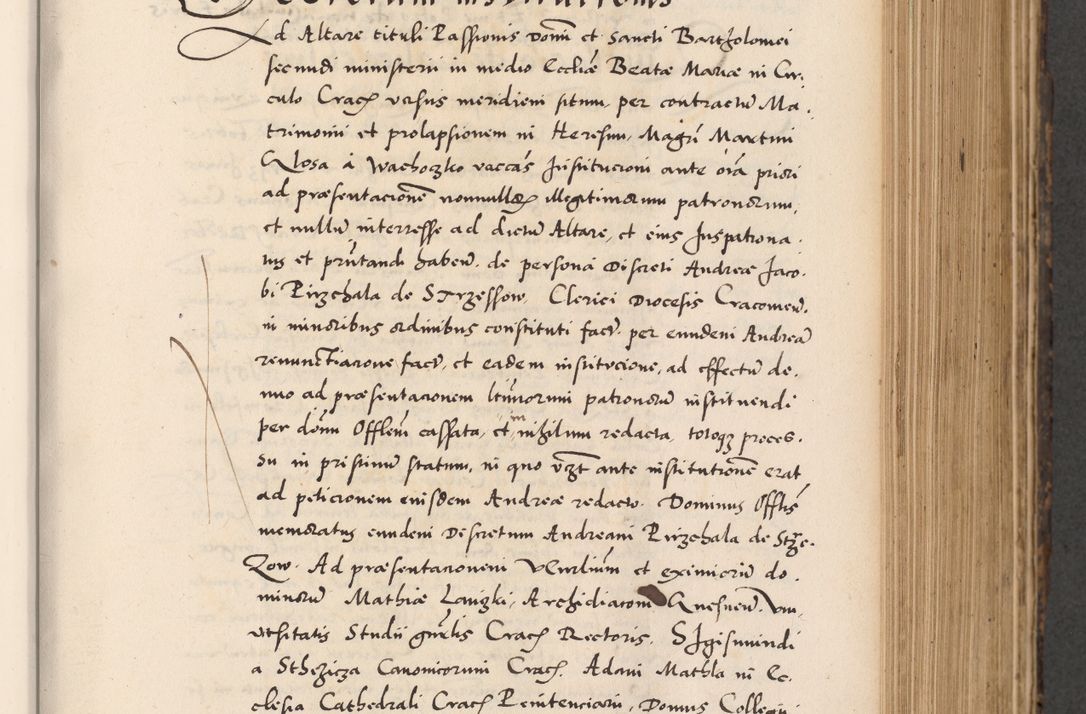 Decretum institutionis
Ad Altare tituli Passionis domi et Sancti Bartholomei
secundi ministerii in medio Eccliæ Beatæ Mariæ in Cir,
culo Crac versus meridiem situm, per contractum Ma,
trimonii et prolapsionem in Heresim, Magri Martini
Glosa à Wachoczko vaccans Institucioni ante ora priori
ad præsentacionem nonnullor illegitimorum patronorum,
et nullum interresse ad dictum Altare, et eius Juspatrona,
tus et prntandi haben. de persona Discreti Andreæ Jaco,
bi Pirzchala de Strzessow Clerici Diocesis Cracovien.
in minoribus ordinibus constituti fact. per eundem Andream
renunctiacione fact, et eadem institucione, ad effectum de,
nuo ad præsentacionem ltimorum patronorum instituendi
per donum Offlem cassata, et in nihilum redacta, totoq proces,
su in pristinum statum, in quo vzt ante institutionem erat
ad peticionem eiusdem Andreæ redacto. Dominus Offlis
memoratus eundem Discretum Andream Pirzchala de Strze,
zow. Ad præsentacionem Venlium et eximiorum do,
minorum Mathiæ Archidiaconi Gnesnen. Vni,
versitatis Studii gnrlis Crac Rectoris. Sigismundi
a Sthezicza Canonicorum Crac. Adami Mathla in Ec,
clesia Cathedrali Crac Penitenciarii, Domus Collegii